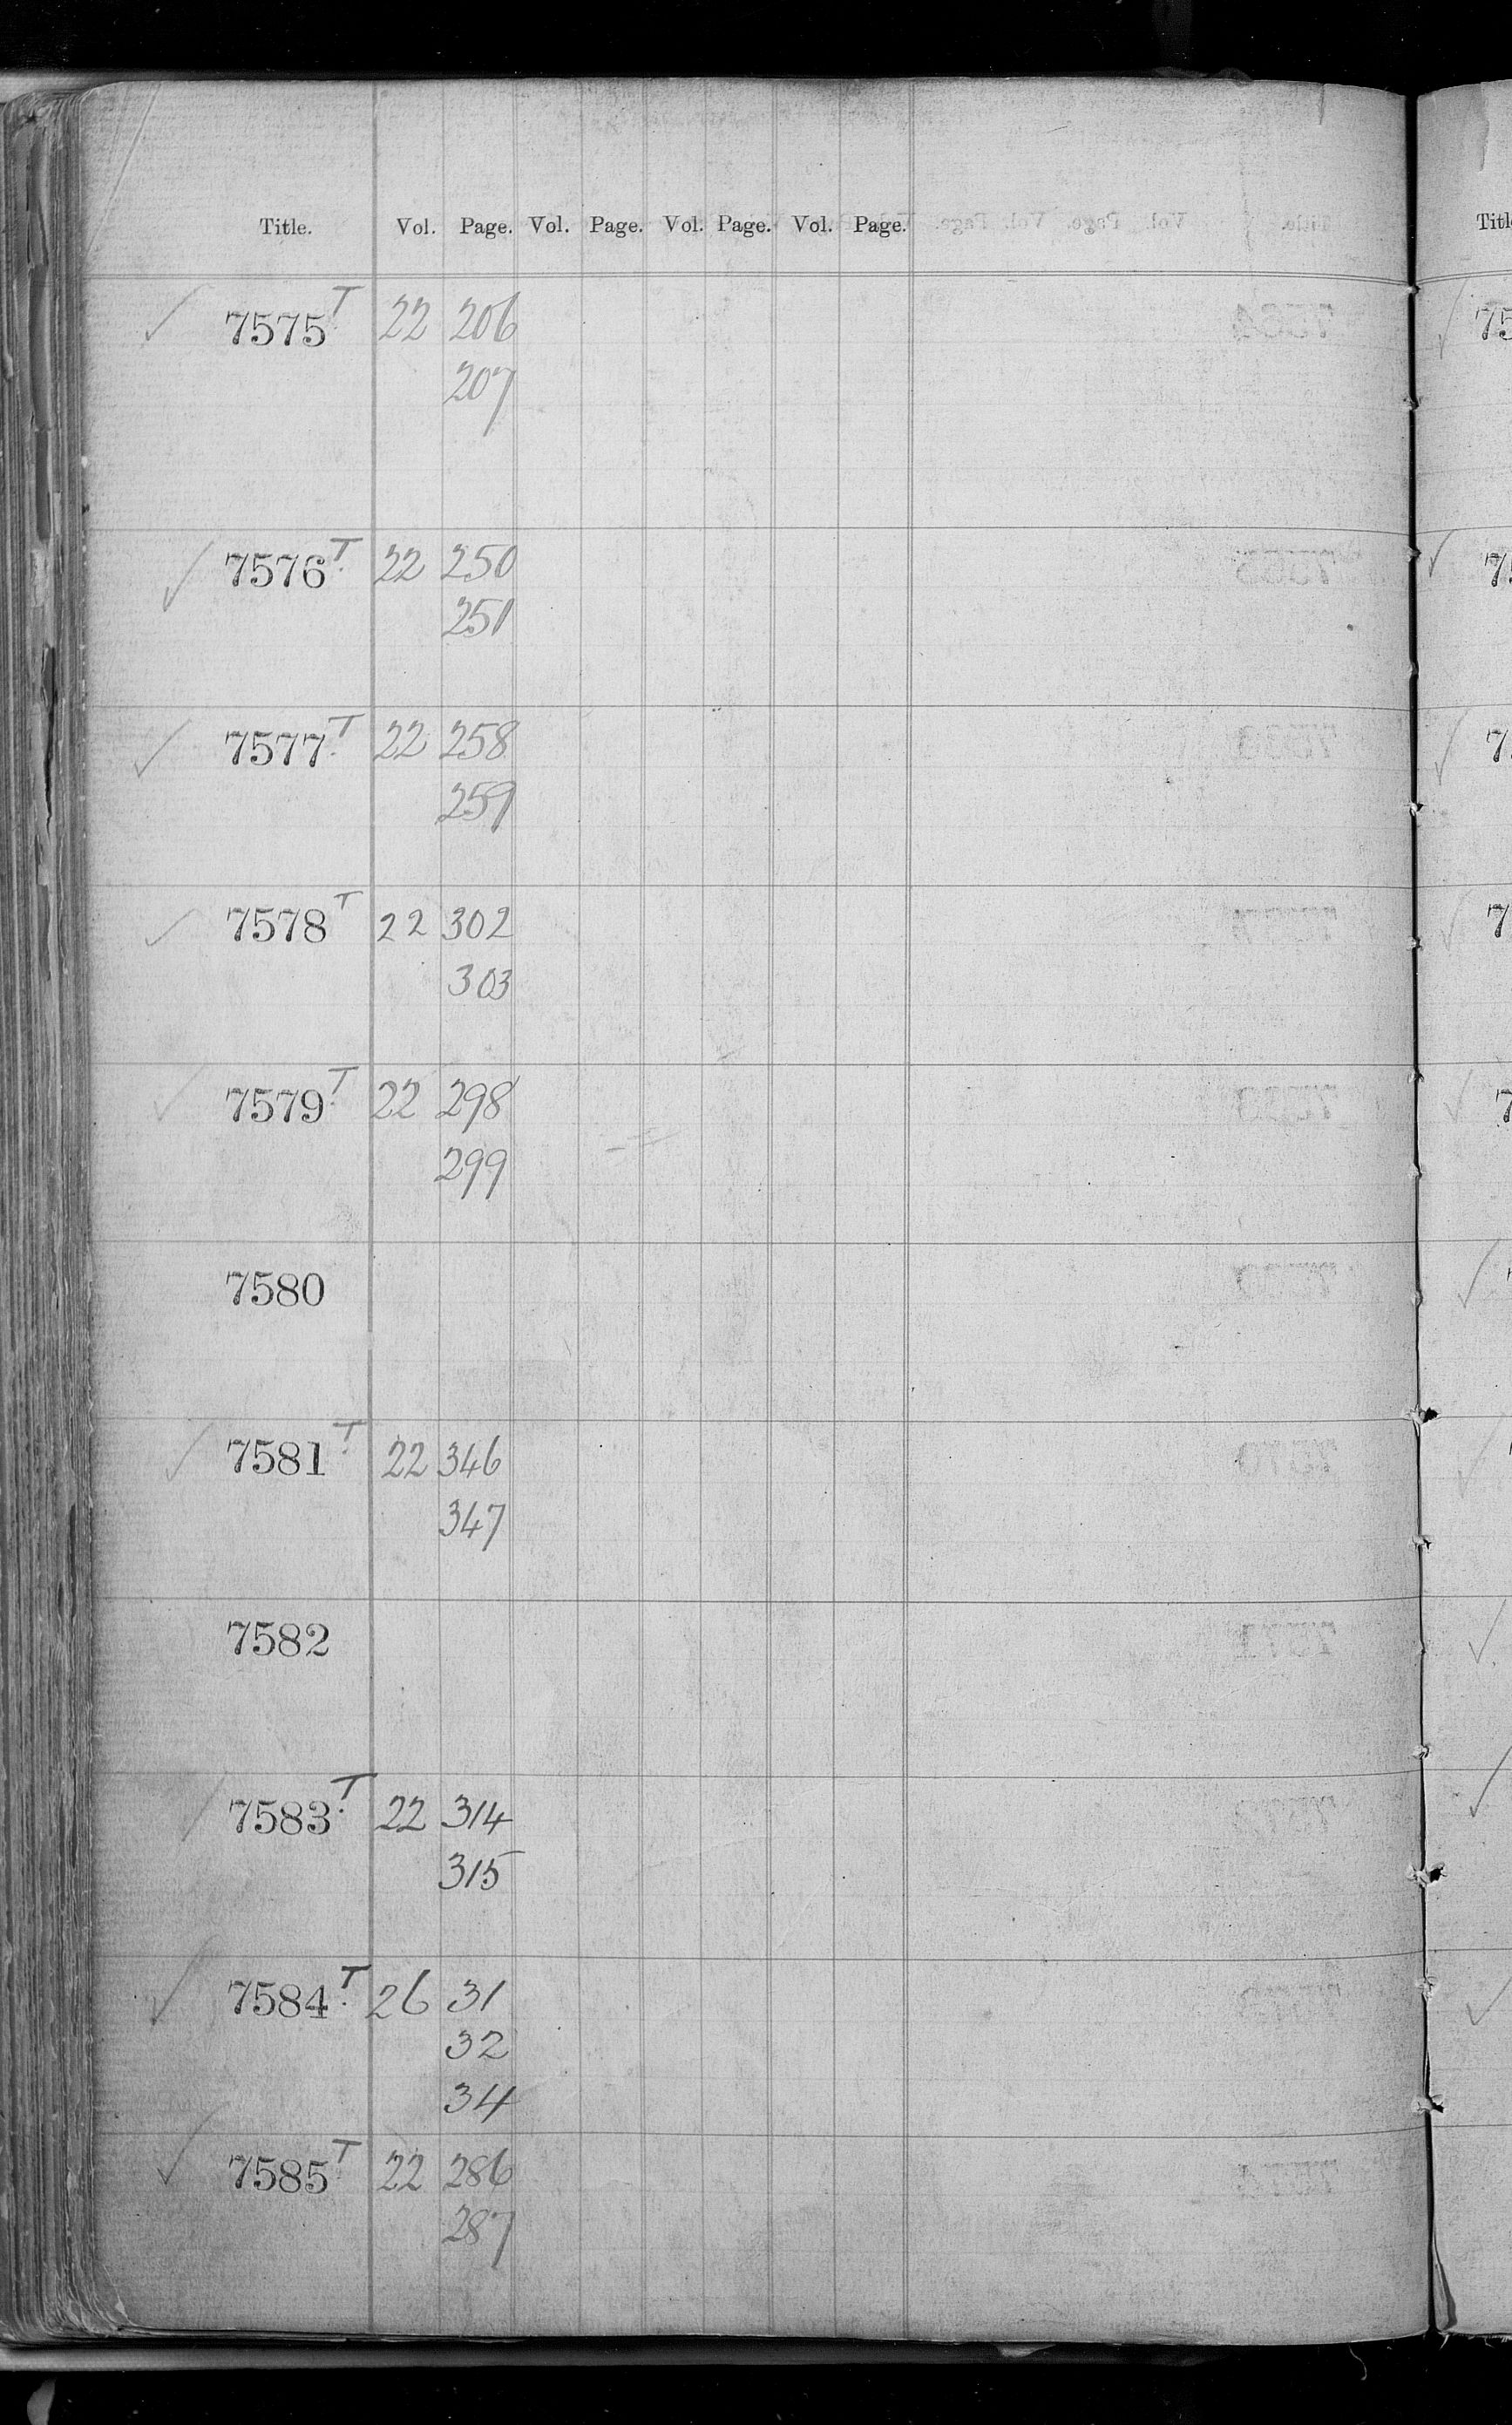 Title. Vol. Page. Vol. Page. Vol. Page. Vol. Page.
✓ 7575 T 22 206
207
✓ 7576 T 22 250
251
✓ 7577 T 22 258
259
✓ 7578 T 22 302
303
✓ 7579 T 22 298
299
7580
✓ 7581 T 22 346
347
7582
7583 T 22 314
315
✓ 7584 T 26 31
32
34
✓ 7585 T 22 286
287